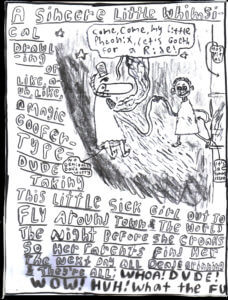 A Sincere Little Whimsi-
cal
Drawl-
ing
of
Like, a-
uh, Like,
a Magic
Goofer-
Type-
Dude
Taking
Come, Come, my little
Phoenix, let's Goeth
for a Ride!
This Little Sick Girl out to
Fly Around Town & The World
The Night Before she Croaks
So Her Parents Find Her
The Next Day All Dead & Grinning
& They're All! WHOA! DUDE!
WOW! HUH! What the FU